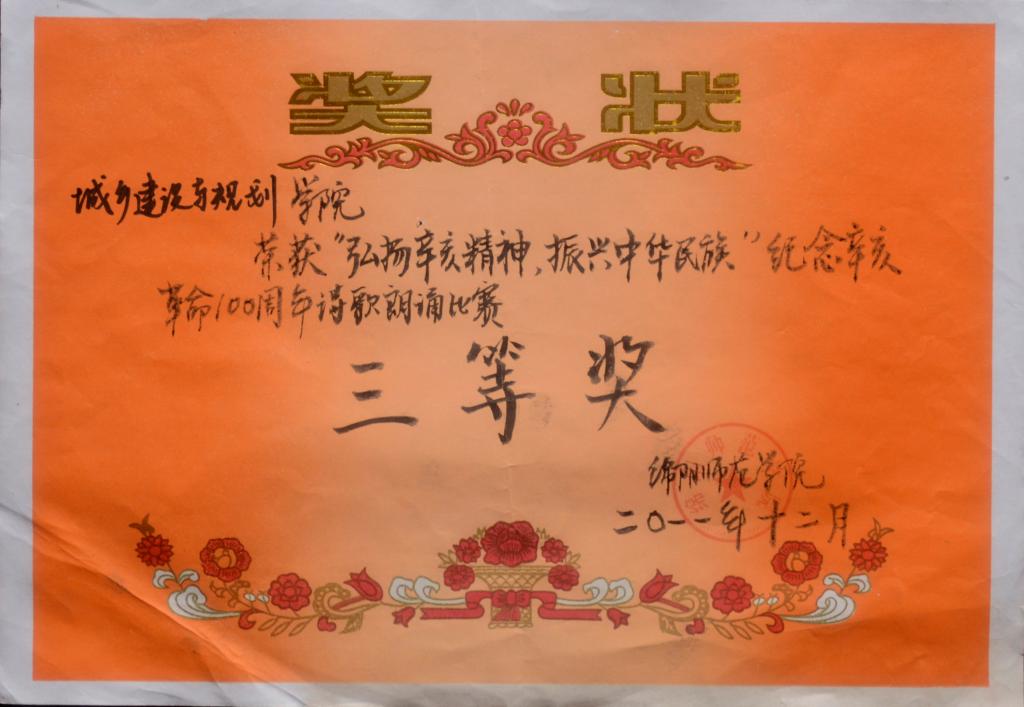 奖状
城乡建设与规划学院
荣获“弘扬辛亥精神、振兴中华民族”纪念辛亥
革命100周年诗歌朗诵比赛
三等奖
绵阳师范学院
二〇一一年十二月